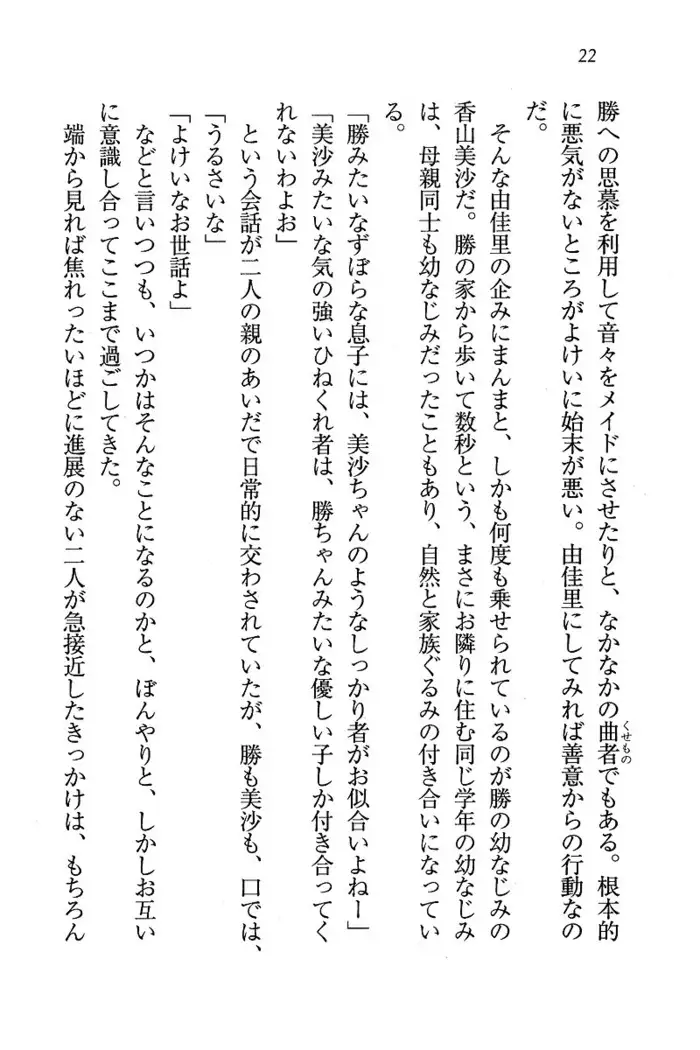 22
勝への思慕を利用して音々をメイドにさせたりと、なかなかの曲者でもある。根本的
くせもの
に悪気がないところがよけいに始末が悪い。由佳里にしてみれば善意からの行動なの
だ。
そんな由佳里の企みにまんまと、しかも何度も乗せられているのが勝の幼なじみの
香山美沙だ。勝の家から歩いて数秒という、まさにお隣りに住む同じ学年の幼なじみ
は、母親同士も幼なじみだったこともあり、自然と家族ぐるみの付き合いになってい
る。
「勝みたいなずぼらな息子には、美沙ちゃんのようなしっかり者がお似合いよねー」
「美沙みたいな気の強いひねくれ者は、勝ちゃんみたいな優しい子しか付き合ってく
れないわよお」
という会話が二人の親のあいだで日常的に交わされていたが、勝も美沙も、口では、
「うるさいな」
「よけいなお世話よ」
などと言いつつも、いつかはそんなことになるのかと、ぼんやりと、しかしお互い
に意識し合ってここまで過ごしてきた。
端から見れば焦れったいほどに進展のない二人が急接近したきっかけは、もちろん